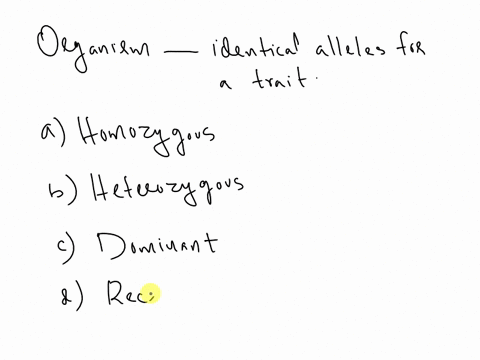 Organism — identical alleles for
a trait.
a) Homozygous
b) Heterozygous
c) Dominant
d) Rec